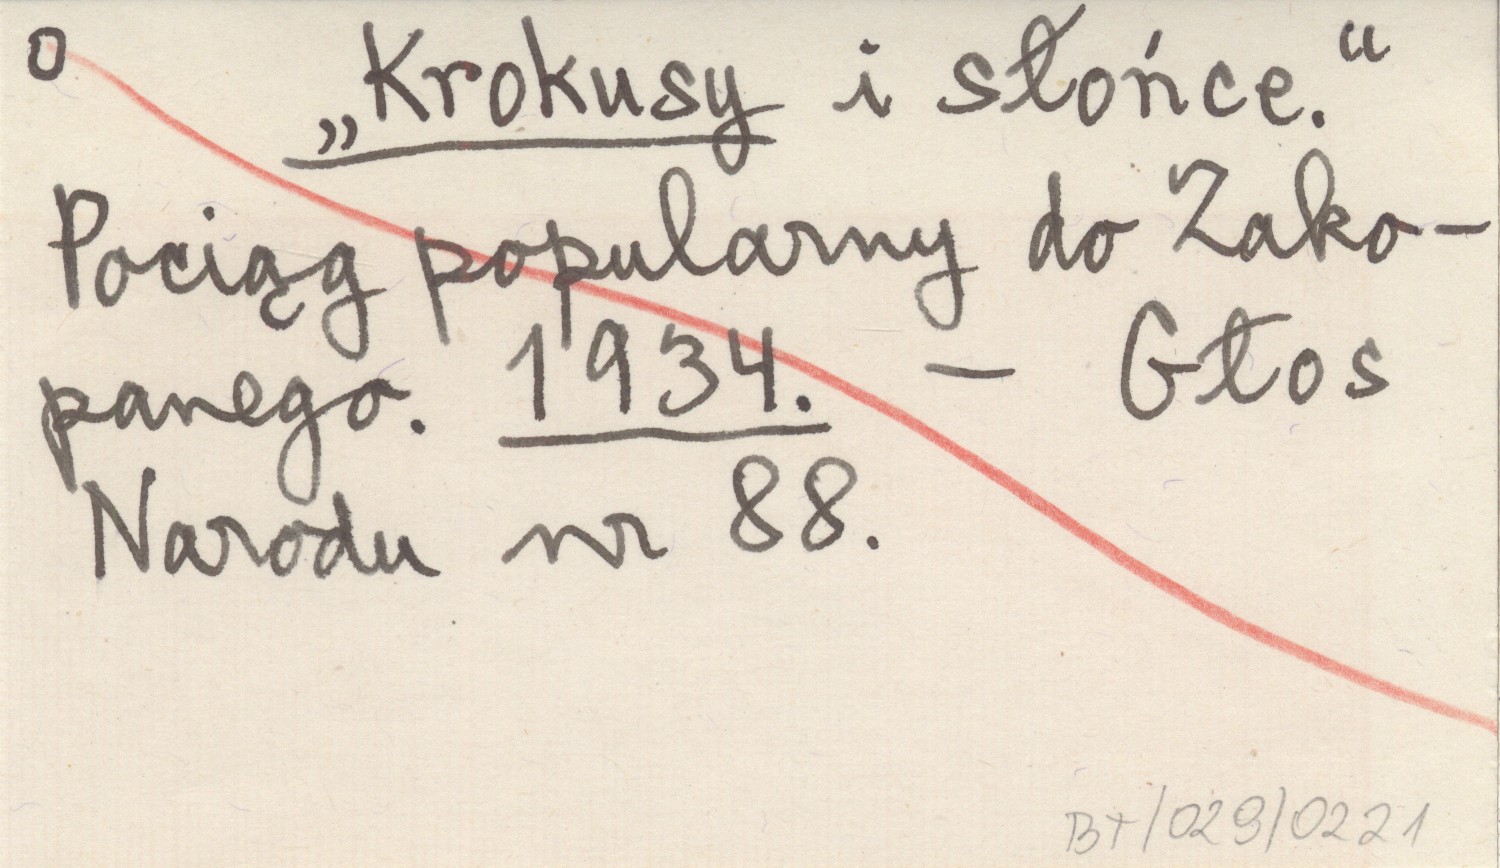 0 „Krokusy i słońce.“
Pociąg popularny do Zako-
panego. 1934. — Głos
Narodu nr 88.
BT/029/0221